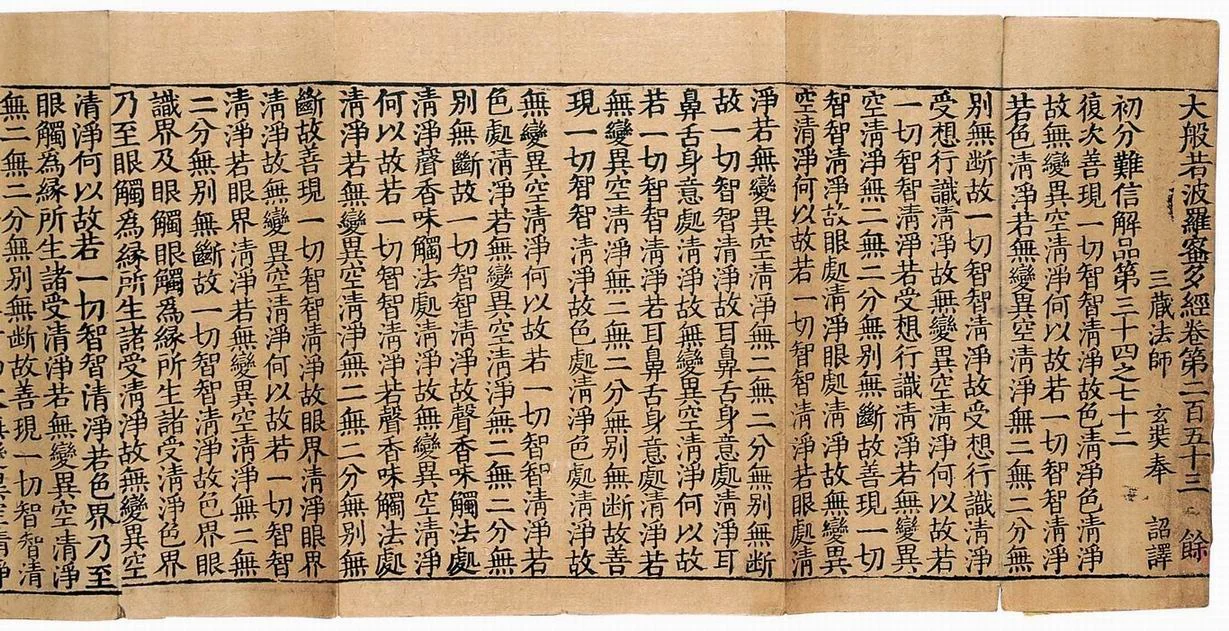 大般若波羅蜜多經卷第二百五十三 餘
三藏法師 玄奘奉 詔譯
初分難信解品第三十四之七十二
復次善現一切智智清淨故色清淨色清淨
故無變異空清淨何以故若一切智智清淨
若色清淨若無變異空清淨無二無二分無
別無断故一切智智清淨故受想行識清淨
受想行識清淨故無變異空清淨何以故若
一切智智清淨若受想行識清淨若無變異
空清淨無二無二分無別無斷故善現一切
智智清淨故眼處清淨眼處清淨故無變異
空清淨何以故若一切智智清淨若眼處清
淨若無變異空清淨無二無二分無别無断
故一切智智清淨故耳鼻舌身意處清淨耳
鼻舌身意處清淨故無變異空清淨何以故
若一切智智清淨若耳鼻舌身意處清淨若
無變異空清淨無二無二分無别無断故善
現一切智智清淨故色處清淨色處清淨故
無變異空清淨何以故若一切智智清淨若
色處清淨若無變異空清淨無二無二分無
别無斷故一切智智清淨故聲香味觸法處
清淨聲香味觸法處清淨故無變異空清淨
何以故若一切智智清淨若聲香味觸法處
清淨若無變異空清淨無二無二分無别無
斷故善現一切智智清淨故眼界清淨眼界
清淨故無變異空清淨何以故若一切智智
清淨若眼界清淨若無變異空清淨無二無
二分無别無斷故一切智智清淨故色界眼
識界及眼觸眼觸為緣所生諸受清淨色界
乃至眼觸為緣所生諸受清淨故無變異空
清淨何以故若一切智智清淨若色界乃至
眼觸為緣所生諸受清淨若無變異空清淨
無二無二分無别無断故善現一切智智清